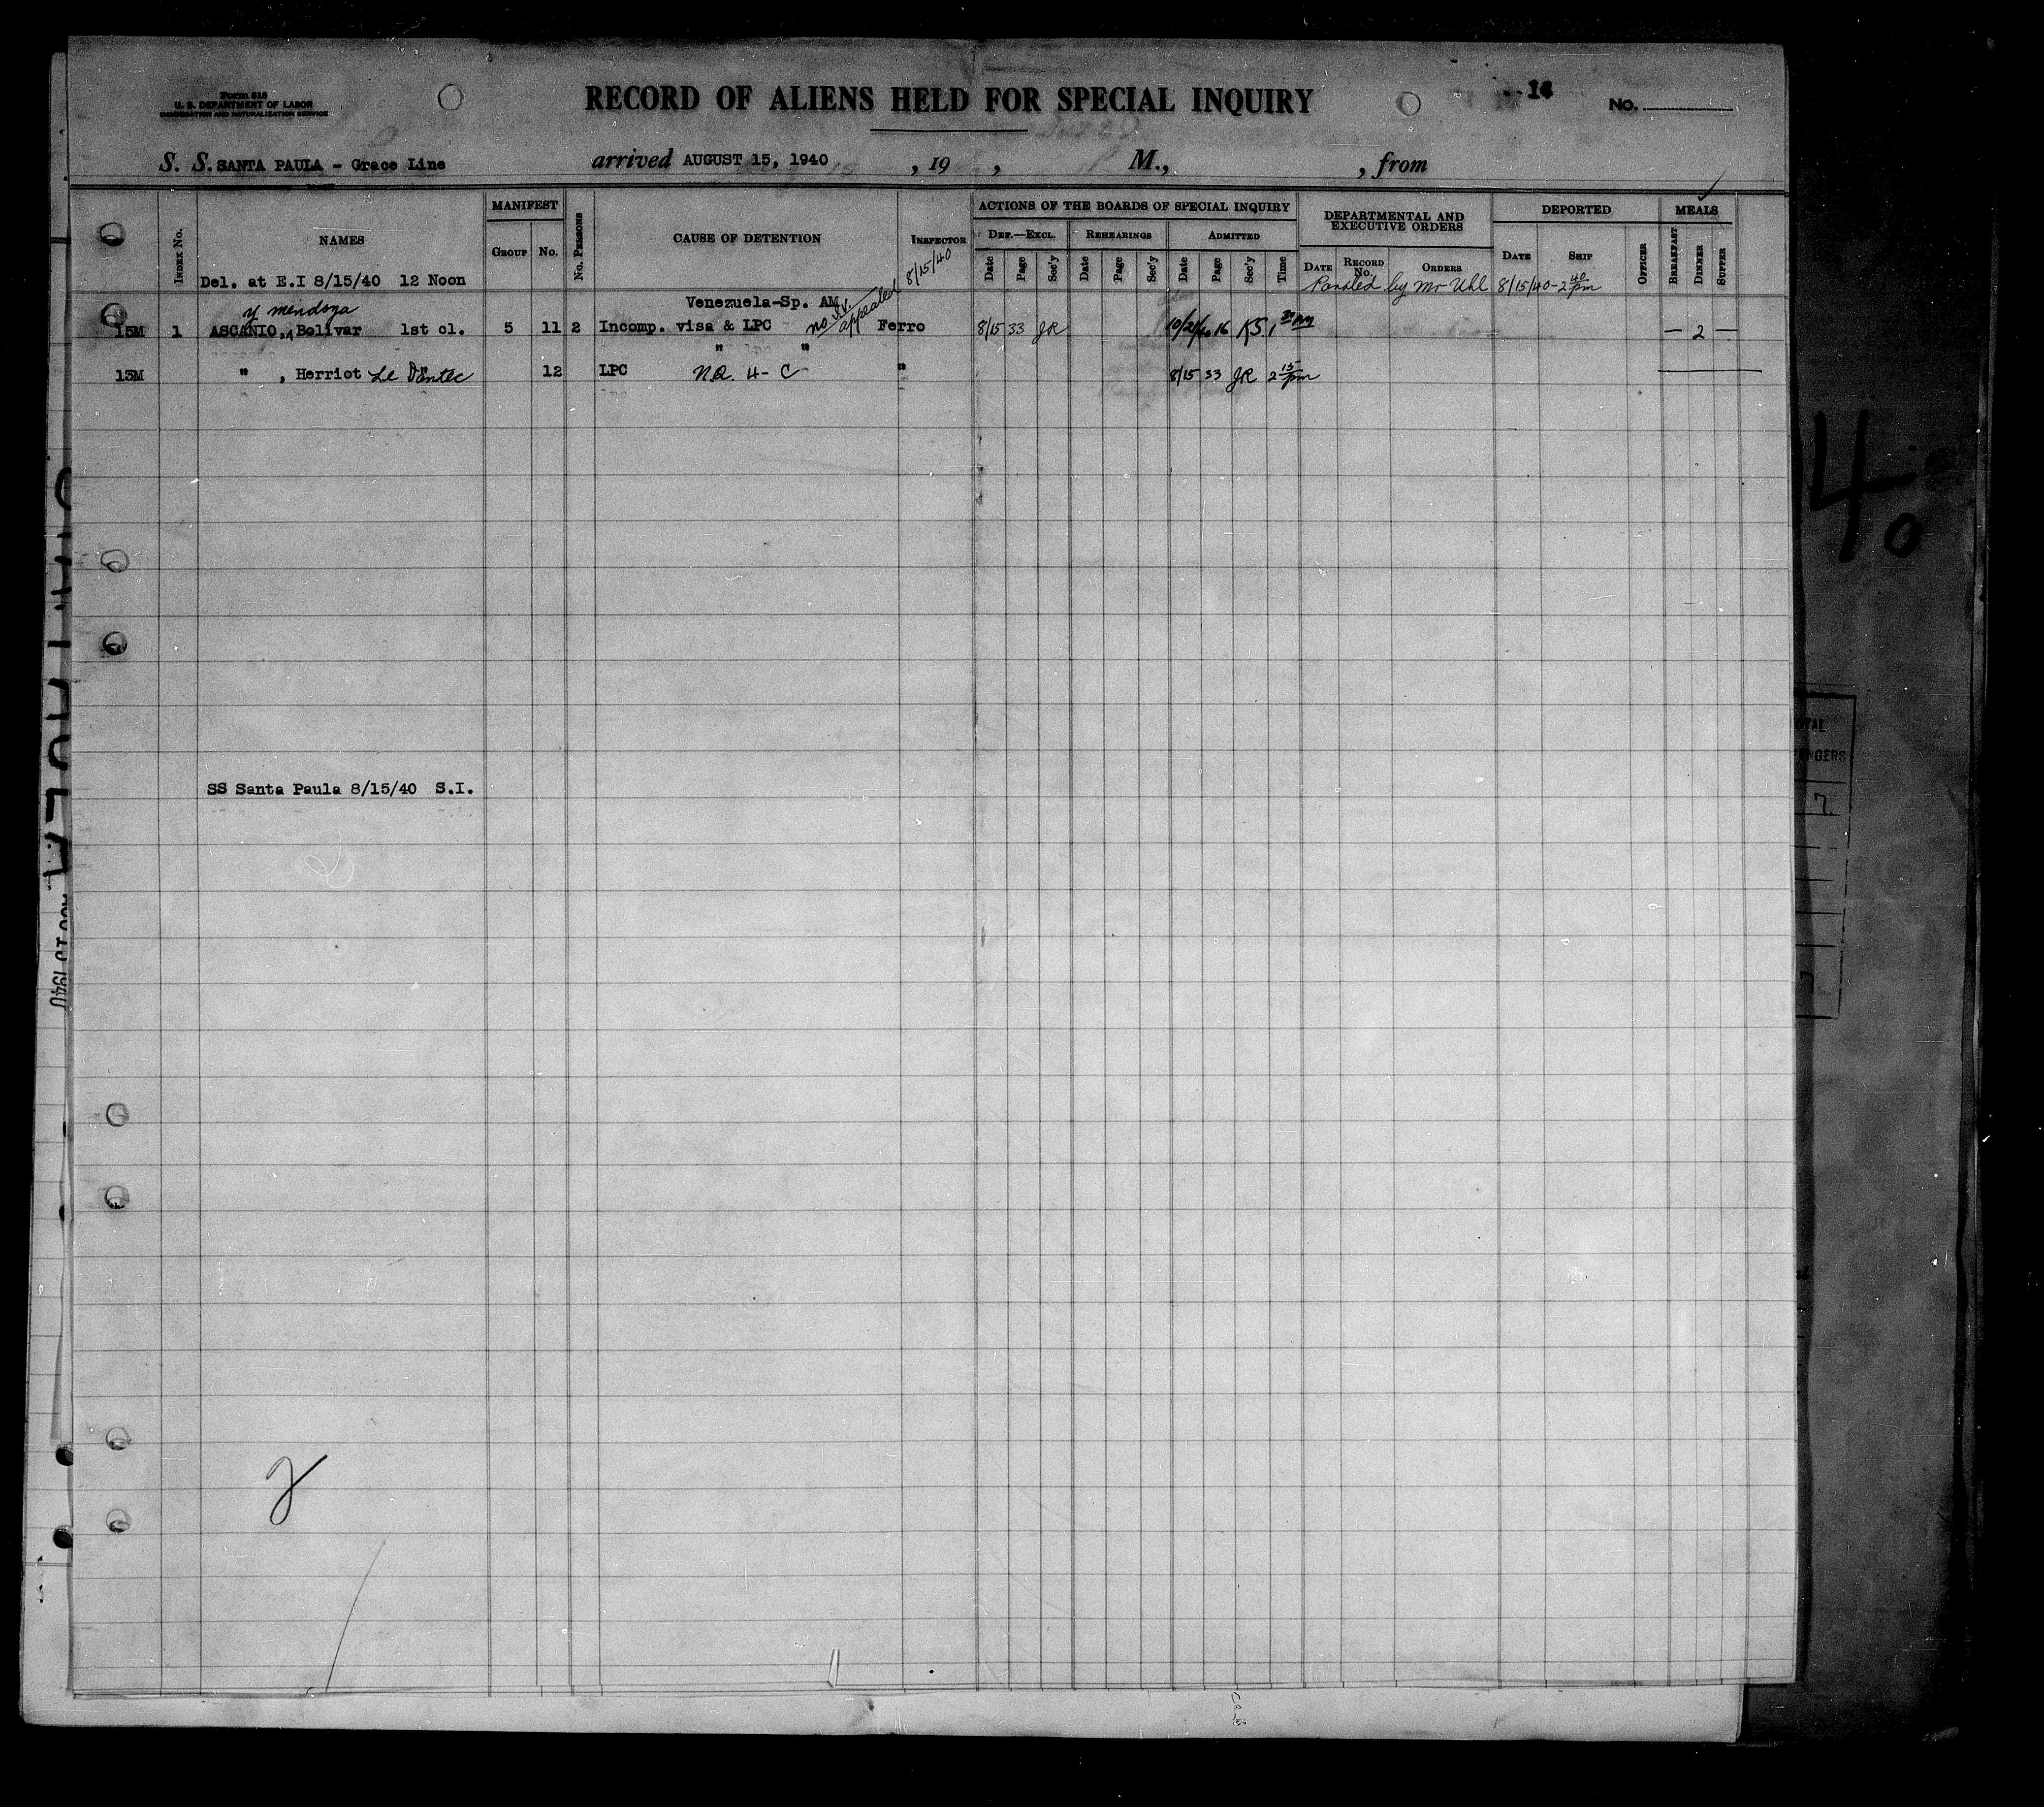 Form 518
U. S. DEPARTMENT OF LABOR
IMMIGRATION AND NATURALIZATION SERVICE
RECORD OF ALIENS HELD FOR SPECIAL INQUIRY
14
No.
S. S. SANTA PAULA - Grace Line arrived AUGUST 15, 1940 , 19 , M., , from
MANIFEST ACTIONS OF THE BOARDS OF SPECIAL INQUIRY DEPARTMENTAL AND EXECUTIVE ORDERS DEPORTED MEALS
Index No. NAMES Group No. No. Persons CAUSE OF DETENTION Inspector Def.—Excl. Rehearings Admitted
Date Page Sec'y Date Page Sec'y Date Page Sec'y Time Date Record No. Orders Date Ship Officer Breakfast Dinner Supper
Del. at E.I 8/15/40 12 Noon
8/15/40
Paroled by Mr Uhl 8/15/40 - 2 40 pm
y Mendoza Venezuela-Sp. AM. appealed
15M 1 ASCANIO, Bolivar 1st cl. 5 11 2 Incomp. visa & LPC no Ferro 8/15 33 JR 16 KS 1 30 PM — 2 —
" "
13M " , Herriot Le Dantec 12 LPC 4-C " 8/15 33 JR 2 15 pm
SS Santa Paula 8/15/40 S.I.
2
40
7
1940